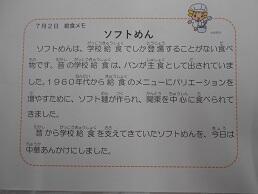 7月2日 給食メモ
ソフトめん
ソフトめんは、学校給食でしか登場することがない食べ
物です。昔の学校給食は、パンが主食として出されていま
した。1960年代から給食のメニューにバリエーションを
増やすために、ソフト麺が作られ、関東を中心に食べられて
きました。
昔から学校給食を支えてきていたソフトめんを、今日は
中華あんかけにしました。